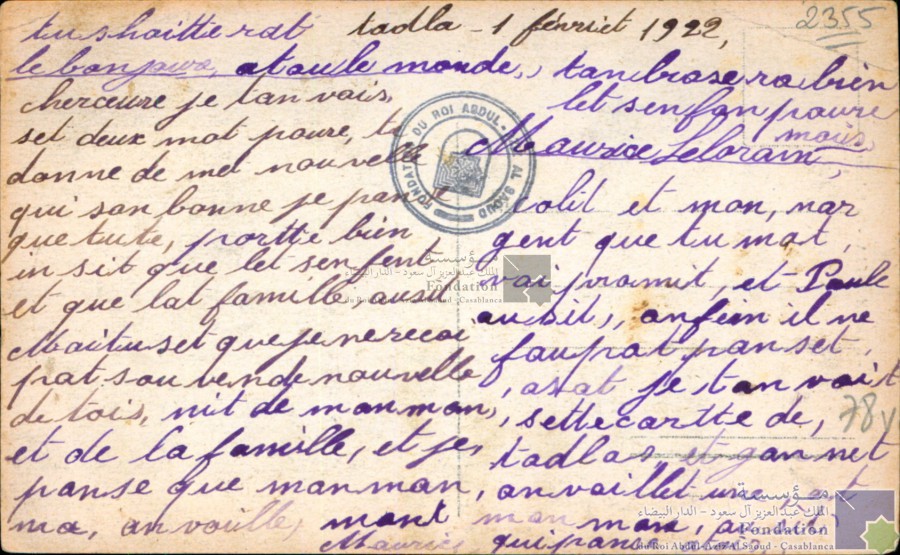 tu shaitterat
le bonjour, atoule monde,
tadla - 1 février 1922,
2355
tanbrasera bien
let senfan poure
mois,
Maurice Lelorain
cherceure je tan vais,
set deux mot poure, te
donne de met nouvelle
qui son bonne je panse
que tute, portte bien
in sit que let senfent
et que lat famille, ausit
Maituset que je ne recoi
pat souvende nouvelle
de tois, nit de manman,
et de la famille, et je,
panse que manman,
ma, anvoille, mont
Maurice
colit et mon, nar
gent que tu mat,
vai promit, et Paule
ausit, anfein il ne
faupat panset,
, asat je tan voit
, settecartte de,
tadla et jan net
, anvaillet une, et
man man,
qui panse
78
FONDATION DU ROI ABDUL-AZIZ AL SAOUD
مؤسسة
الملك عبد العزيز آل سعود - الدار البيضاء
Fondation
du Roi Abdul-Aziz Al Saoud - Casablanca
مؤسسة
الملك عبد العزيز آل سعود - الدار البيضاء
Fondation
du Roi Abdul-Aziz Al Saoud - Casablanca